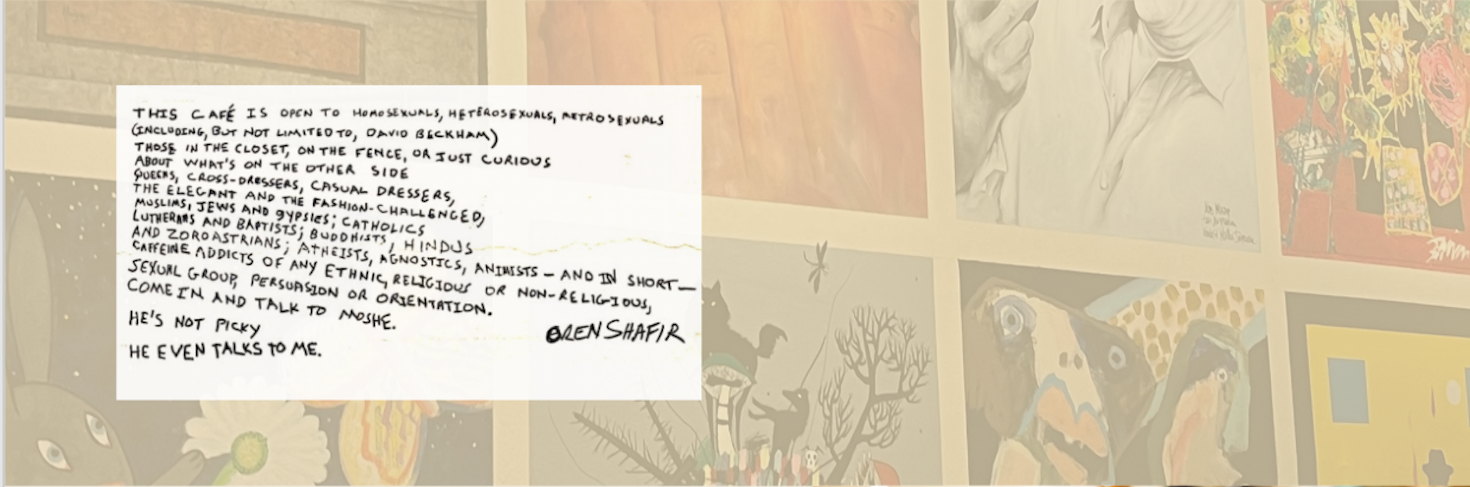 THIS CAFÉ IS OPEN TO HOMOSEXUALS, HETEROSEXUALS, METROSEXUALS
(INCLUDING, BUT NOT LIMITED TO, DAVID BECKHAM)
THOSE IN THE CLOSET, ON THE FENCE, OR JUST CURIOUS
ABOUT WHAT'S ON THE OTHER SIDE
QUEERS, CROSS-DRESSERS, CASUAL DRESSERS,
THE ELEGANT AND THE FASHION-CHALLENGED,
MUSLIMS, JEWS AND GYPSIES; CATHOLICS
LUTHERANS AND BAPTISTS; BUDDHISTS, HINDUS
AND ZOROASTRIANS; ATHEISTS, AGNOSTICS, ANIMISTS – AND IN SHORT –
CAFFEINE ADDICTS OF ANY ETHNIC, RELIGIOUS OR NON-RELIGIOUS,
SEXUAL GROUP, PERSUASION OR ORIENTATION.
COME IN AND TALK TO MOSHE.
HE'S NOT PICKY
HE EVEN TALKS TO ME.
OREN SHAFIR